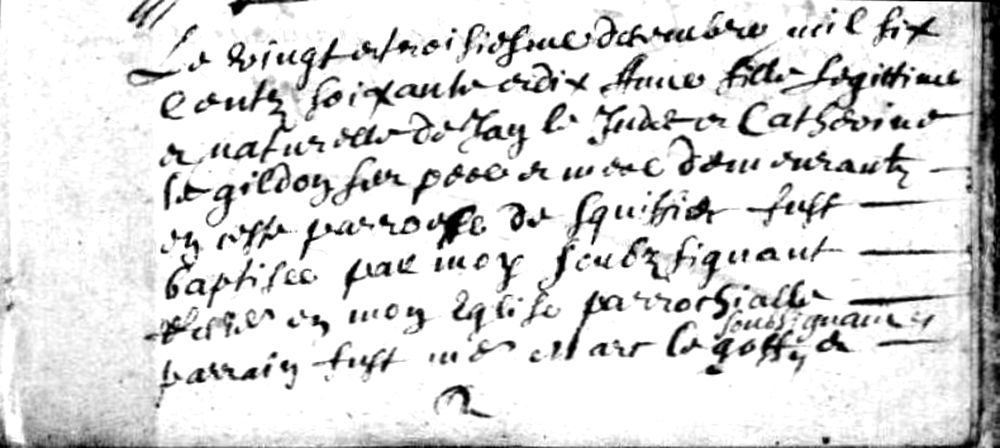 Le vingt et troisiesme decembre mil six
centz soixante et dix Anne fille legittime
et naturelle de Jan le Jude et Catherine
le gildoy ses pere et mere demeurantz
en ceste parroesse de squiffiec fust
baptisee par moy soubz signant
en mon Eglise parrochialle
soubsignant
parrain fust Marc le goffer